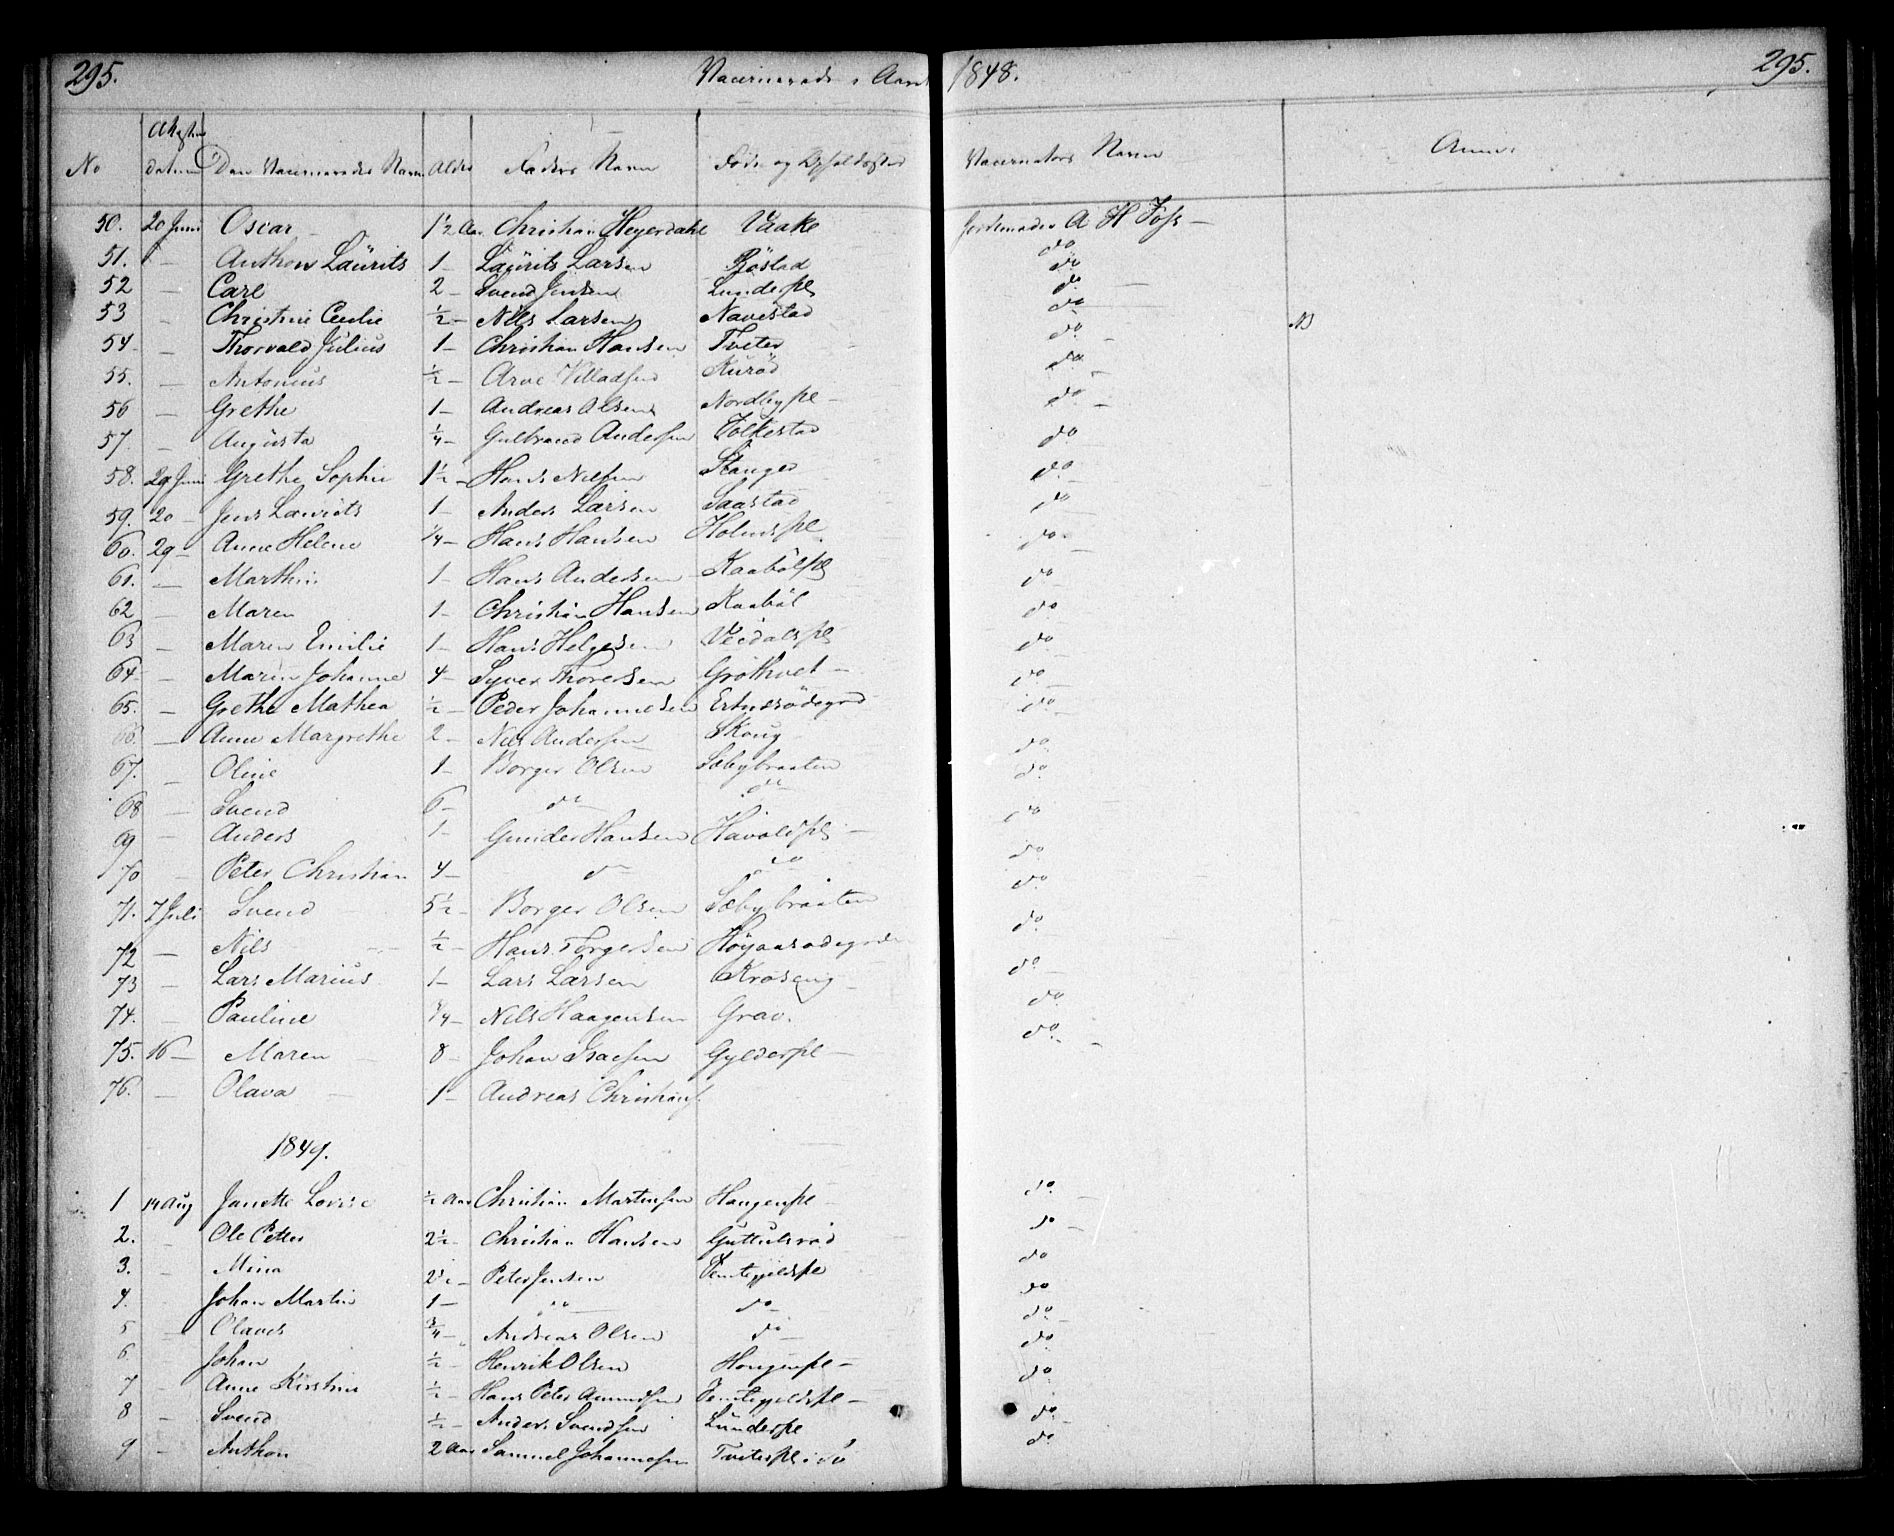 295. Vaccinerede i Aaret 1848. 295.
No Attestens datum Den Vaccineredes Navn Alder Faders Navn Føde og Opholdssted Vaccinators Navn Anm:
50. 20 Juni Oscar 1½ Aar Christian Heyerdahl Vaake A H Foss
51. — Anthon Laurits 1 — Laurits Larsen Röstad do
52 — Carl 2 — Svend Jensen Lundepl do
53 — Christine Cecilie ½ — Nils Larsen Navestad do
54 — Thorvald Julius 1 — Christian Hansen Tveter do
55. — Antonius ½ — Arve Villadsen Kuröd do
56 — Grethe 1 — Andreas Olsen Nordbypl — do
57. — Augusta ¼ — Gulbrand Andersen Folkestad do
58. 29 Juni Grethe Sophie 1½ — Hans Nilsen Stanger do
59. 20 — Jens Laurits 1 — Anders Larsen Saastad do
60. 29 — Anne Helene ¼ — Hans Hansen Holmspl. do
61. — Marthin 1 — Hans Andersen Kaabölpl do
62 — Maren 1 — Christian Hansen Kaaböl do
63 — Maren Emilie 1 — Hans Helgesen Veidalspl do
64 — Maren Johanne 4 — Syver Thoresen Gröthvet — do
65. — Grethe Mathea ½ — Peder Johannesen do
66. — Anne Margrethe 2 — Nils Andersen Skoug do
67. — Oline 1 — Borger Olsen Sæbybraaten do
68 — Svend 6 — do do do
69 — Anders 1 — Gunder Hansen Havoldpl — do
70 — Peter Christian 4 — do do do
71. 7 Juli Svend 5½ — Borger Olsen Sæbybraaten do
72 — Nils ½ — Hans Torgersen do
73 — Lars Marius 1 — Lars Larsen Kroseng do
74. — Pauline ¾ — Nils Haagensen Grav. do
75. 16 — Maren 8 — Johan Isacsen Gylderpl — do
76. — Olava — 1 — Andreas Christians.
1849.
1 14 Aug Janette Lovise ½ Aar Christian Martinsen Haugenpl — do
2. Ole Petter 2½ — Christian Hansen Guttulsröd do
3. — Mina 2½ — Peter Jensen Tomtegjeldspl do
4. Johan Martin 1 — do do do
5 — Olaves ¾ — Andreas Olsen do do
6. Johan ½ — Henrik Olsen Hougenpl — do
7 — Anne Kirstine ½ — Hans Peter Amundsen Tomtegjeldspl — do
8 — Svend ½ — Anders Svendsen Lunderpl do
9 — Anthon 2 Aar Samuel Johannesen Tveterpl do